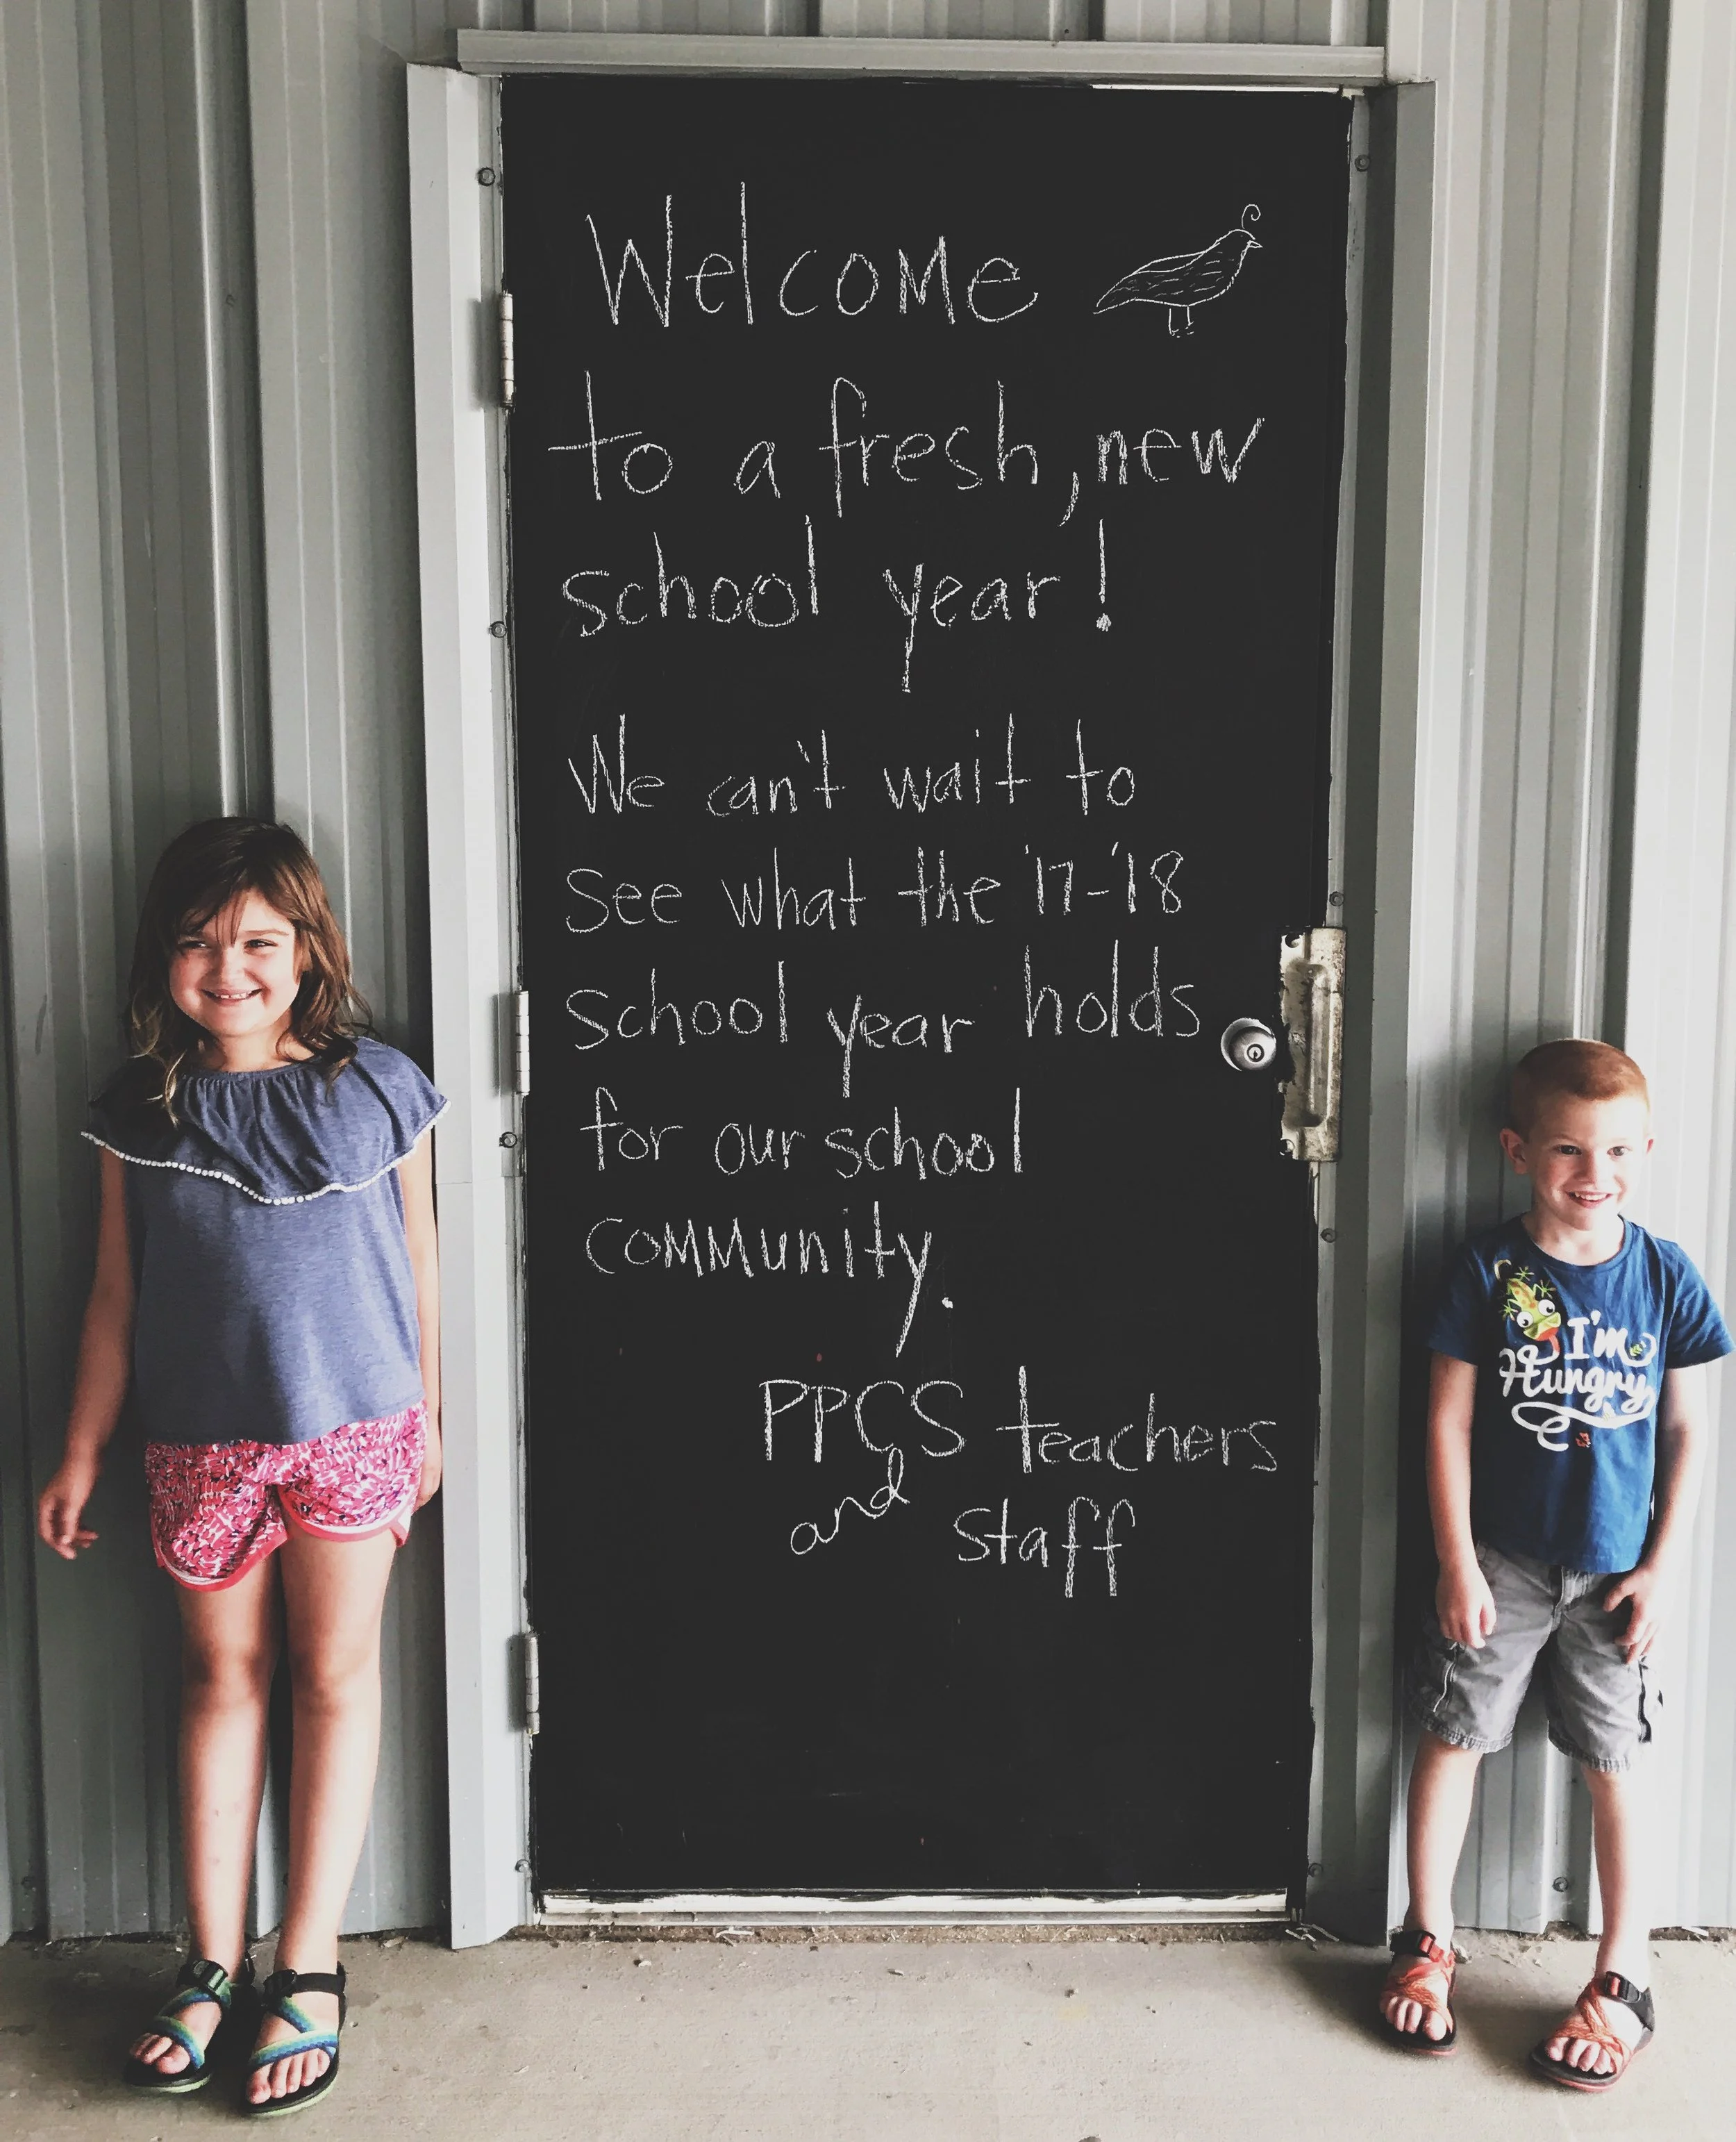 Welcome
to a fresh, new
school year!
We can't wait to
see what the '17-'18
school year holds
for our school
community.
PPCS teachers
and staff
I'm
Hungry